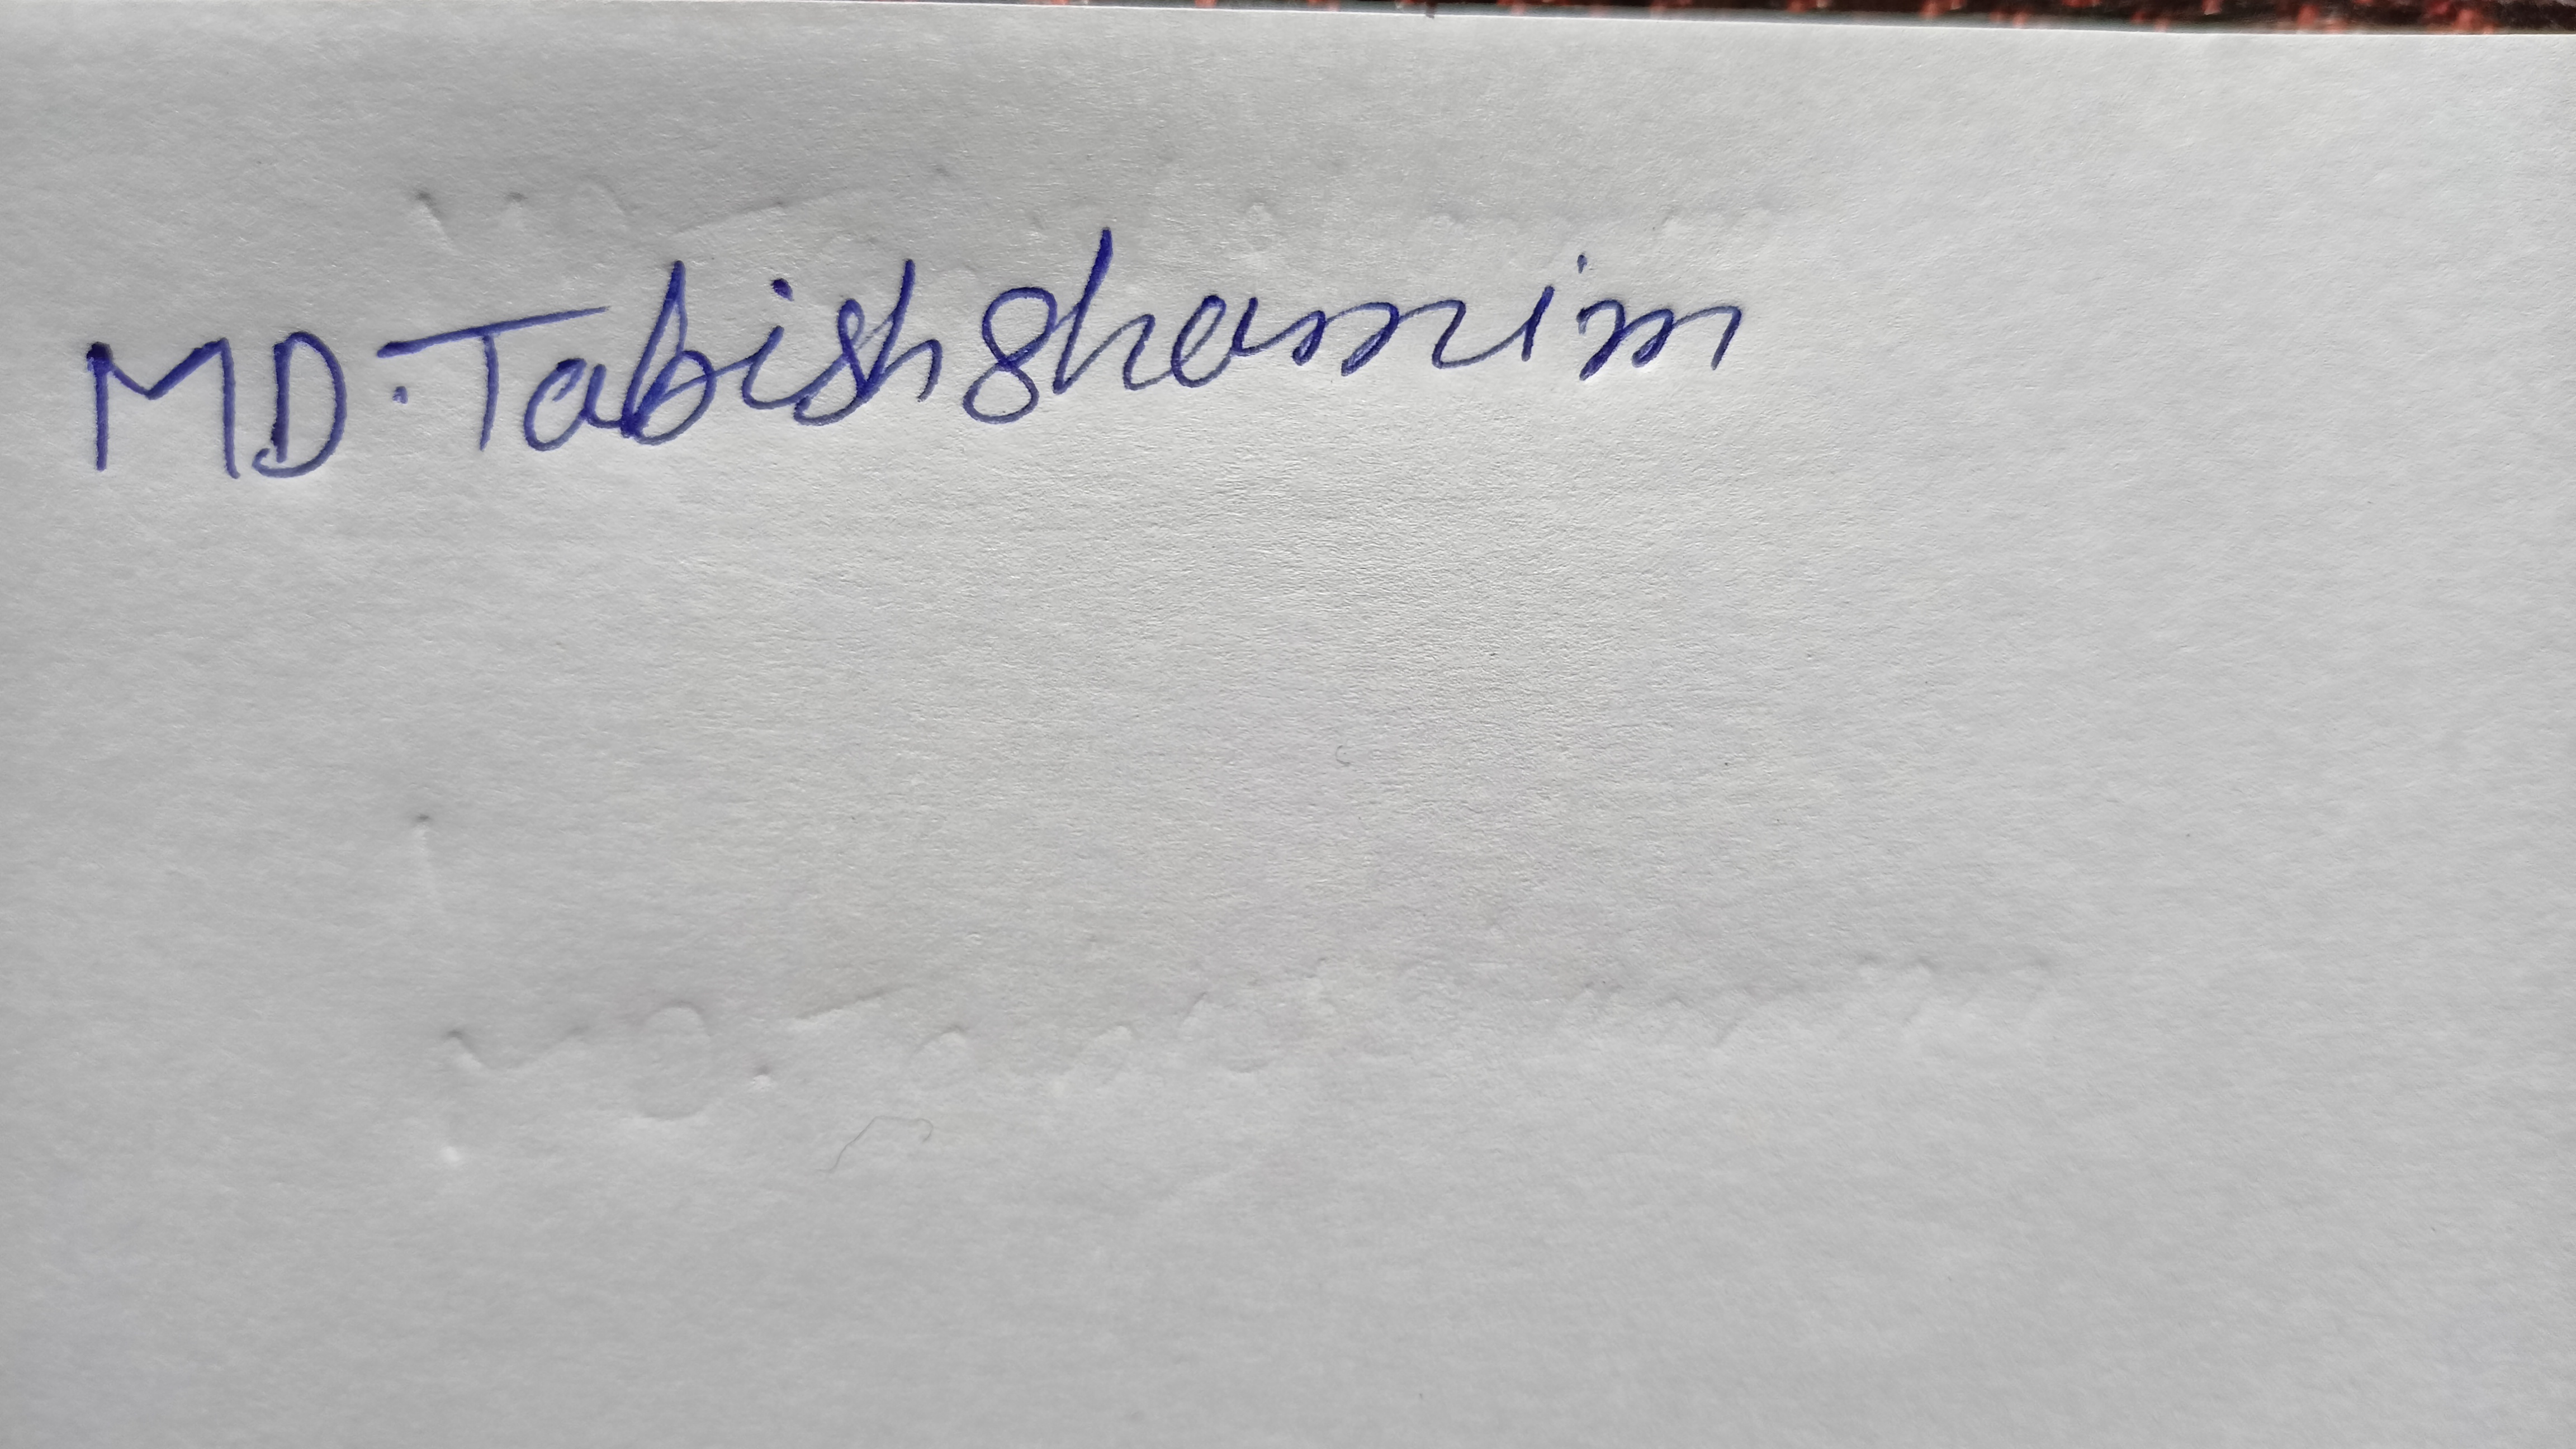 MD. Tabish Shamim